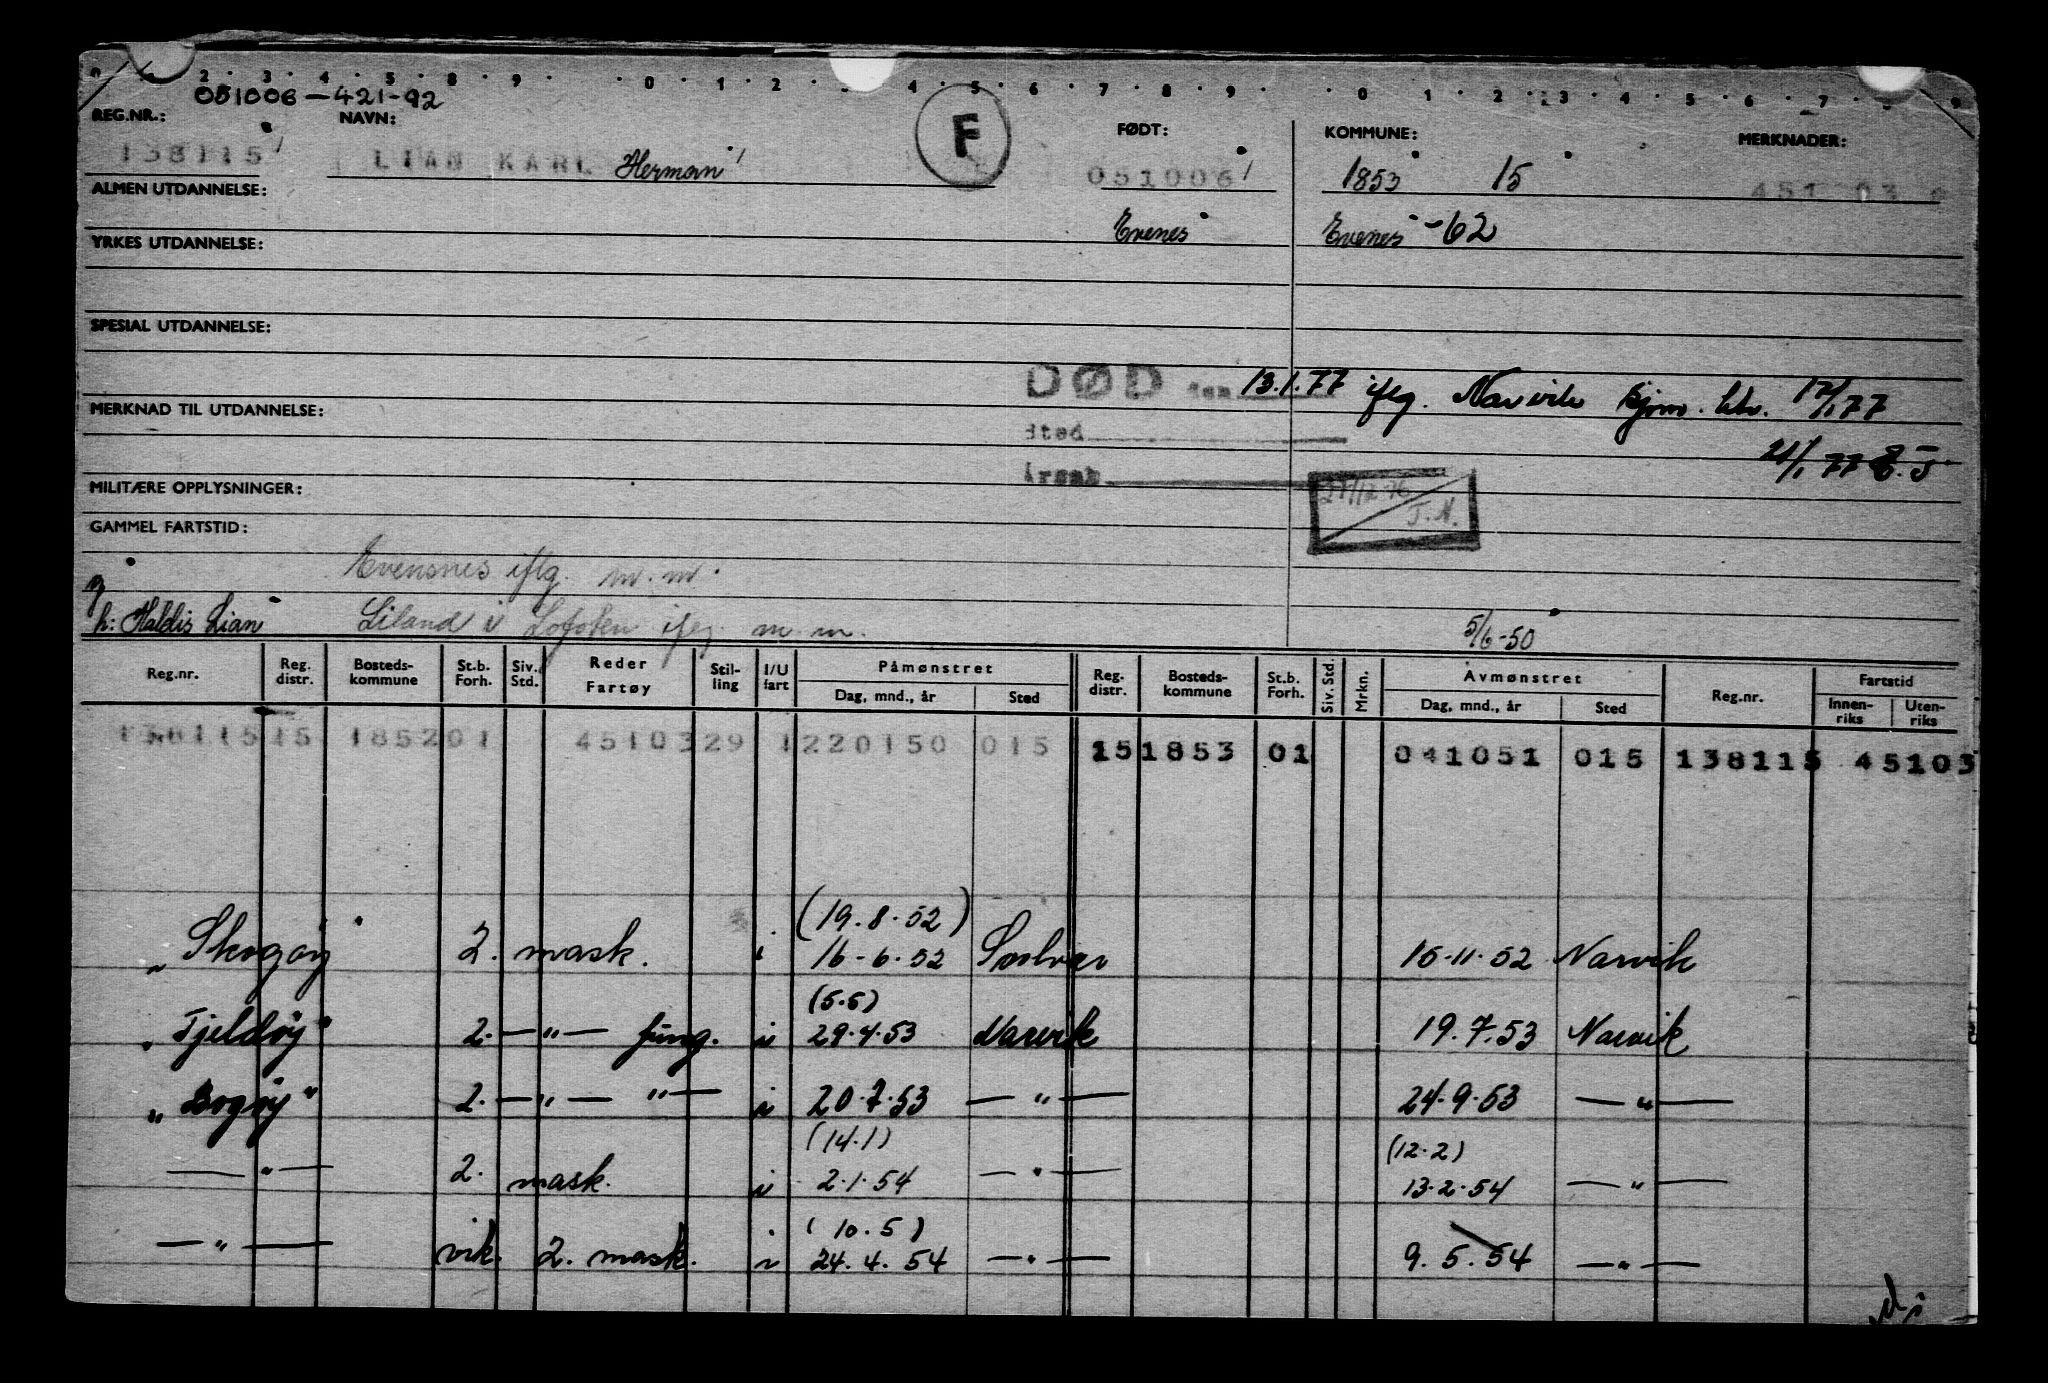 0 2 3 4 5 8 9 0 1 2 4 5 6 7 8 9 0 1 2 3 4 5 6 7 8 9
051006-421-92
REG.NR.: NAVN: F FØDT: KOMMUNE: MERKNADER:
138115 LIAN KARL Herman 051006 1853 15 451 03
ALMEN UTDANNELSE:
Evenes Evenes -62
YRKES UTDANNELSE:
SPESIAL UTDANNELSE:
DØD den 13.1.77 iflg. Narvik Sjøm. ktr. 17/1 77
MERKNAD TIL UTDANNELSE:
Sted
21/1 77
Årsak
MILITÆRE OPPLYSNINGER:
27/12 76
J.N.
GAMMEL FARTSTID:
Evensnes iflg. m.m.
g
h: Haldis Lian Liland i Lofoten iflg. m.m. 5/6-50
Reg.nr. Reg. distr. Bosteds- kommune St.b. Forh. Siv. Std. Reder Fartøy Stil- ling I/U fart Påmønstret Dag, mnd., år Sted Reg. distr. Bosteds- kommune St.b. Forh. Siv. Std. Mrkn. Avmønstret Dag, mnd., år Sted Reg.nr. Fartstid Innen- riks Uten- riks
138115 15 185201 4510329 1220150 015 151853 01 041051 015 138115 45103
(19.8.52)
„Skogøy" 2. mask. i 16-6.52 Svolvær 15-11.52 Narvik
(5.5)
„Tjeldøy" 2. —"— fung. i 29.4.53 Narvik 19.7.53 Narvik
„Bogøy" 2. —"— "— i 20.7.53 —"— 24.9.53 —"—
(14.1) (12.2)
—"— 2. mask. i 2.1.54 —"— 13.2.54 —"—
(10.5)
—"— vik. 2. mask. i 24.4.54 —"— 9.5.54 —"—